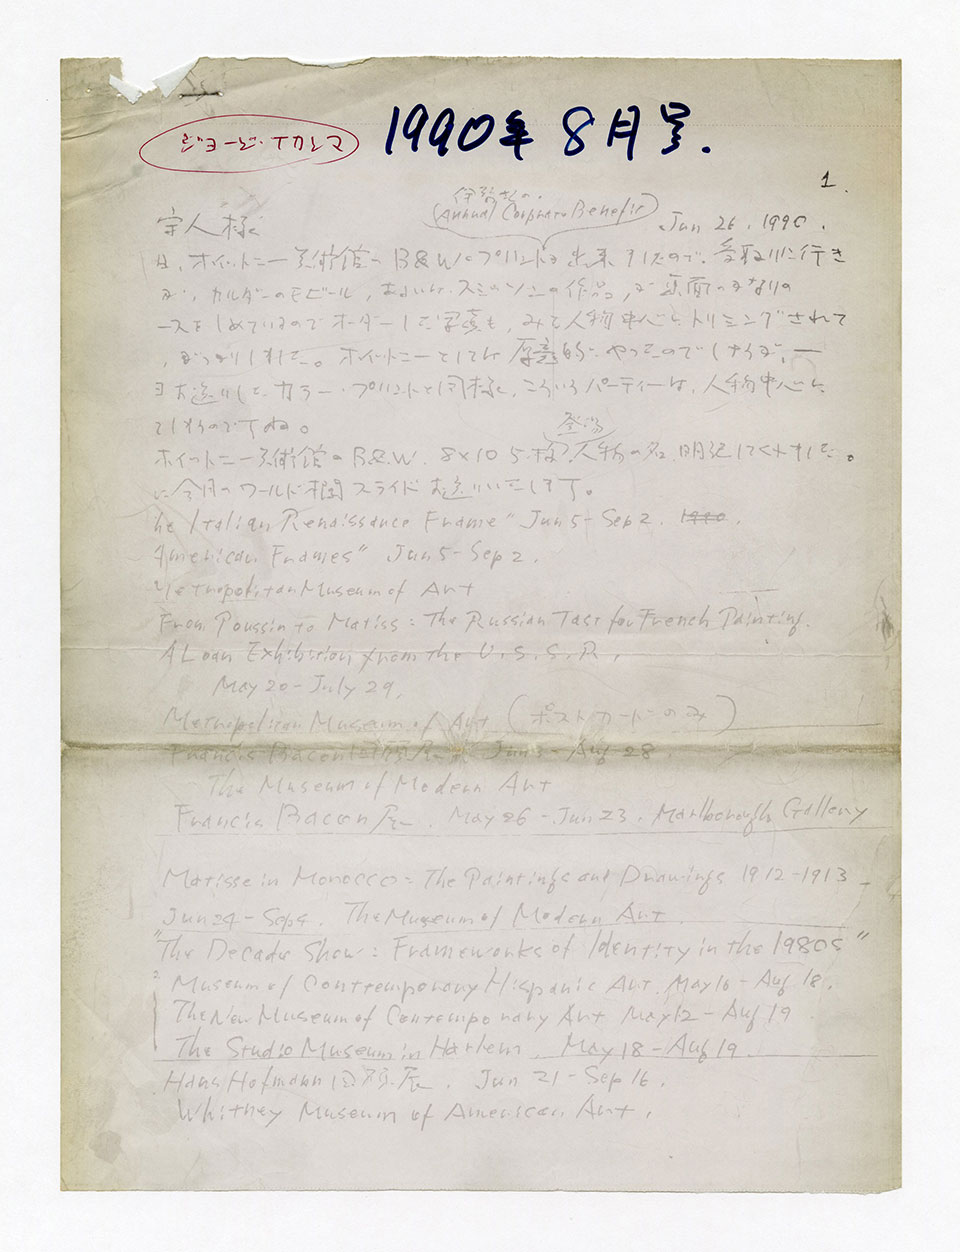 ジョージ・ナカシマ
1990年8月号.
1.
(Annual Corporate Benefit)
Jun 26. 1990.
宗人様
ホイットニー美術館のB&W.プリントが出来ましたので、受取りに行き
カルダーのモビール, の作品, が
ースをしめているのでボーダーした写真も, みな人物中心にトリミングされて
がっかりしました。ホイットニーとしては 的にやったのでしょうが、一
お送りしたカラー・プリントと同様に, こういうパーティーは, 人物中心に
てしまうのですね。
登場
ホイットニー美術館のB&W. 8×10 5枚 人物の名 明記してくれました。
に今月のワールド欄スライドお送りいたします。
he Italian Renaissance Frame" Jun 5 - Sep 2. 1990.
American Frames" Jun 5 - Sep 2.
Metropolitan Museum of Art
From Poussin to Matiss: The Russian Tast for French Painting.
A Loan Exhibition from the U.S.S.R.
May 20 - July 29,
Metropolitan Museum of Art (ポストカードのみ)
Francis Bacon回顧展 Jun - Aug 28.
The Museum of Modern Art
Francis Bacon展. May 26 - Jun 23. Marlborough Gallery
Matisse in Morocco: The Paintings and Drawings 1912-1913
Jun 24 - Sep 4. The Museum of Modern Art.
"The Decade Show: Frameworks of Identity in the 1980s"
Museum of Contemporary Hispanic Art. May 16 - Aug 18.
The New Museum of Contemporary Art May 12 - Aug 19
The Studio Museum in Harlem. May 18 - Aug 19.
Hans Hofmann回顧展. Jun 21 - Sep 16.
Whitney Museum of American Art.